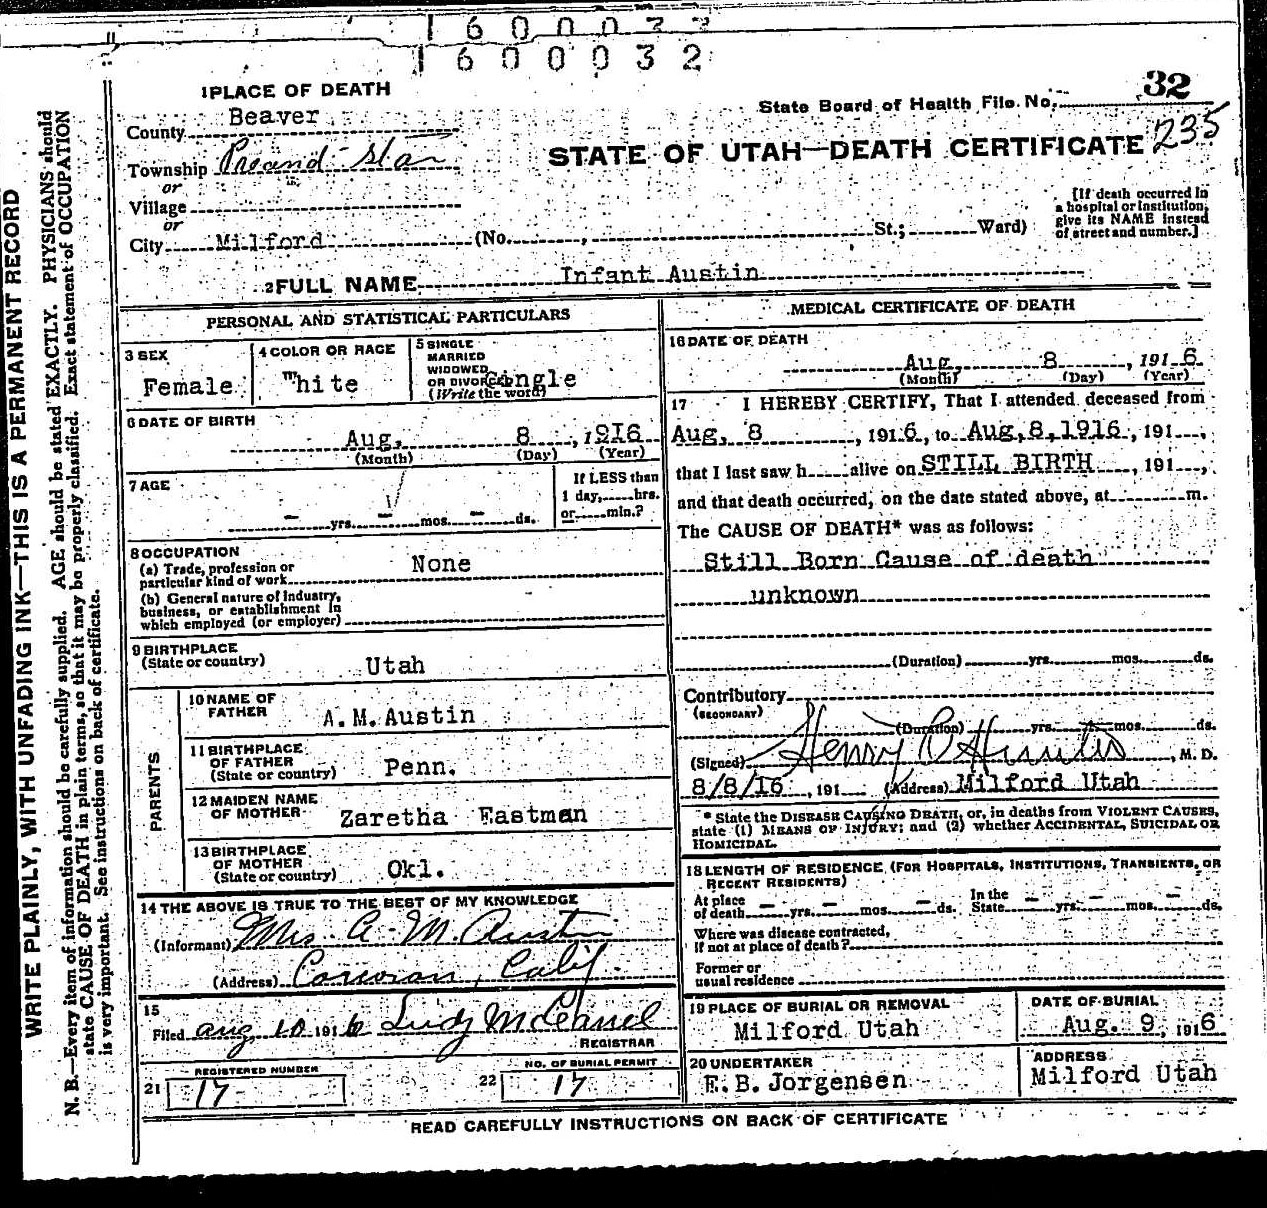 1 6 0 0 0 3 2
1 6 0 0 0 3 2
1 PLACE OF DEATH
State Board of Health File No. 32
County Beaver
STATE OF UTAH—DEATH CERTIFICATE 235
Township Star
or
Village
or
City Milford (No. , St.; Ward)
[If death occurred in
a hospital or institution,
give its NAME instead
of street and number.]
2 FULL NAME Infant Austin
PERSONAL AND STATISTICAL PARTICULARS
3 SEX
Female
4 COLOR OR RACE
White
5 SINGLE
MARRIED
WIDOWED
OR DIVORCED
(Write the word)
Single
6 DATE OF BIRTH
Aug. 8 , 1916
(Month) (Day) (Year)
7 AGE
- yrs. - mos. - ds.
If LESS than
1 day, hrs.
or min.?
8 OCCUPATION
(a) Trade, profession or
particular kind of work None
(b) General nature of Industry,
business, or establishment in
which employed (or employer)
9 BIRTHPLACE
(State or country) Utah
PARENTS
10 NAME OF
FATHER A.M.Austin
11 BIRTHPLACE
OF FATHER
(State or country) Penn.
12 MAIDEN NAME
OF MOTHER Zaretha Eastman
13 BIRTHPLACE
OF MOTHER
(State or country) Okl.
14 THE ABOVE IS TRUE TO THE BEST OF MY KNOWLEDGE
(Informant) Mrs. A. M. Austin
(Address) Corcoran, Calif.
15
Filed Aug 10 1916
REGISTRAR
REGISTERED NUMBER
21 17
NO. OF BURIAL PERMIT
22 17
MEDICAL CERTIFICATE OF DEATH
16 DATE OF DEATH
Aug. 8 , 1916
(Month) (Day) (Year)
17 I HEREBY CERTIFY, That I attended deceased from
Aug. 8 , 1916, to Aug,8,1916 , 191 ,
that I last saw h alive on STILL BIRTH , 191 ,
and that death occurred, on the date stated above, at m.
The CAUSE OF DEATH* was as follows:
Still Born Cause of death
unknown
(Duration) yrs. mos. ds.
Contributory
(SECONDARY)
(Duration) yrs. mos. ds.
(Signed) Henry , M. D.
8/8/16 , 191 (Address) Milford Utah
* State the DISEASE CAUSING DEATH, or, in deaths from VIOLENT CAUSES,
state (1) MEANS OF INJURY; and (2) whether ACCIDENTAL, SUICIDAL OR
HOMICIDAL.
18 LENGTH OF RESIDENCE (FOR HOSPITALS, INSTITUTIONS, TRANSIENTS, OR
RECENT RESIDENTS)
At place
of death - yrs. - mos. - ds.
In the
State - yrs. - mos. - ds.
Where was disease contracted,
if not at place of death?
Former or
usual residence
19 PLACE OF BURIAL OR REMOVAL
Milford Utah
DATE OF BURIAL
Aug. 9, 1916
20 UNDERTAKER
E.B. Jorgensen
ADDRESS
Milford Utah
READ CAREFULLY INSTRUCTIONS ON BACK OF CERTIFICATE
WRITE PLAINLY, WITH UNFADING INK—THIS IS A PERMANENT RECORD
N. B.—Every item of information should be carefully supplied. AGE should be stated EXACTLY. PHYSICIANS should
state CAUSE OF DEATH in plain terms, so that it may be properly classified. Exact statement of OCCUPATION
is very important. See instructions on back of certificate.